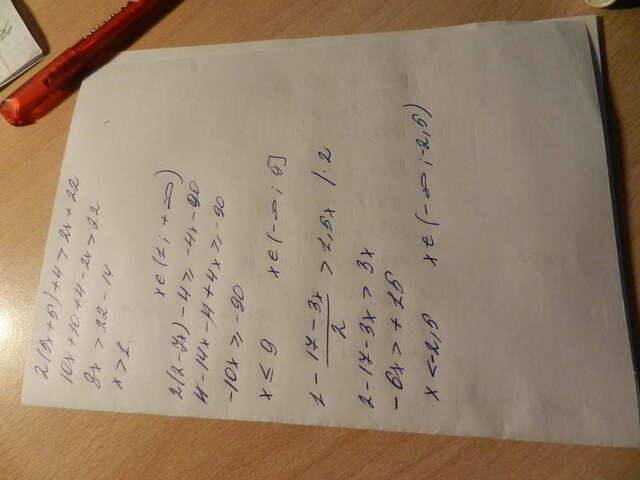 2(5x+5)+4>2x+22
10x+10+4-2x>22
8x>22-14
x>1. x∈(1; +∞)
2(2-7x)-4≥-4x-90
4-14x-4+4x≥-90
-10x≥-90
x≤9 x∈(-∞; 9]
1-\frac{17-3x}{2}>1,5x /·2
2-17-3x>3x
-6x>+15
x<-2,5 x∈(-∞;-2,5)